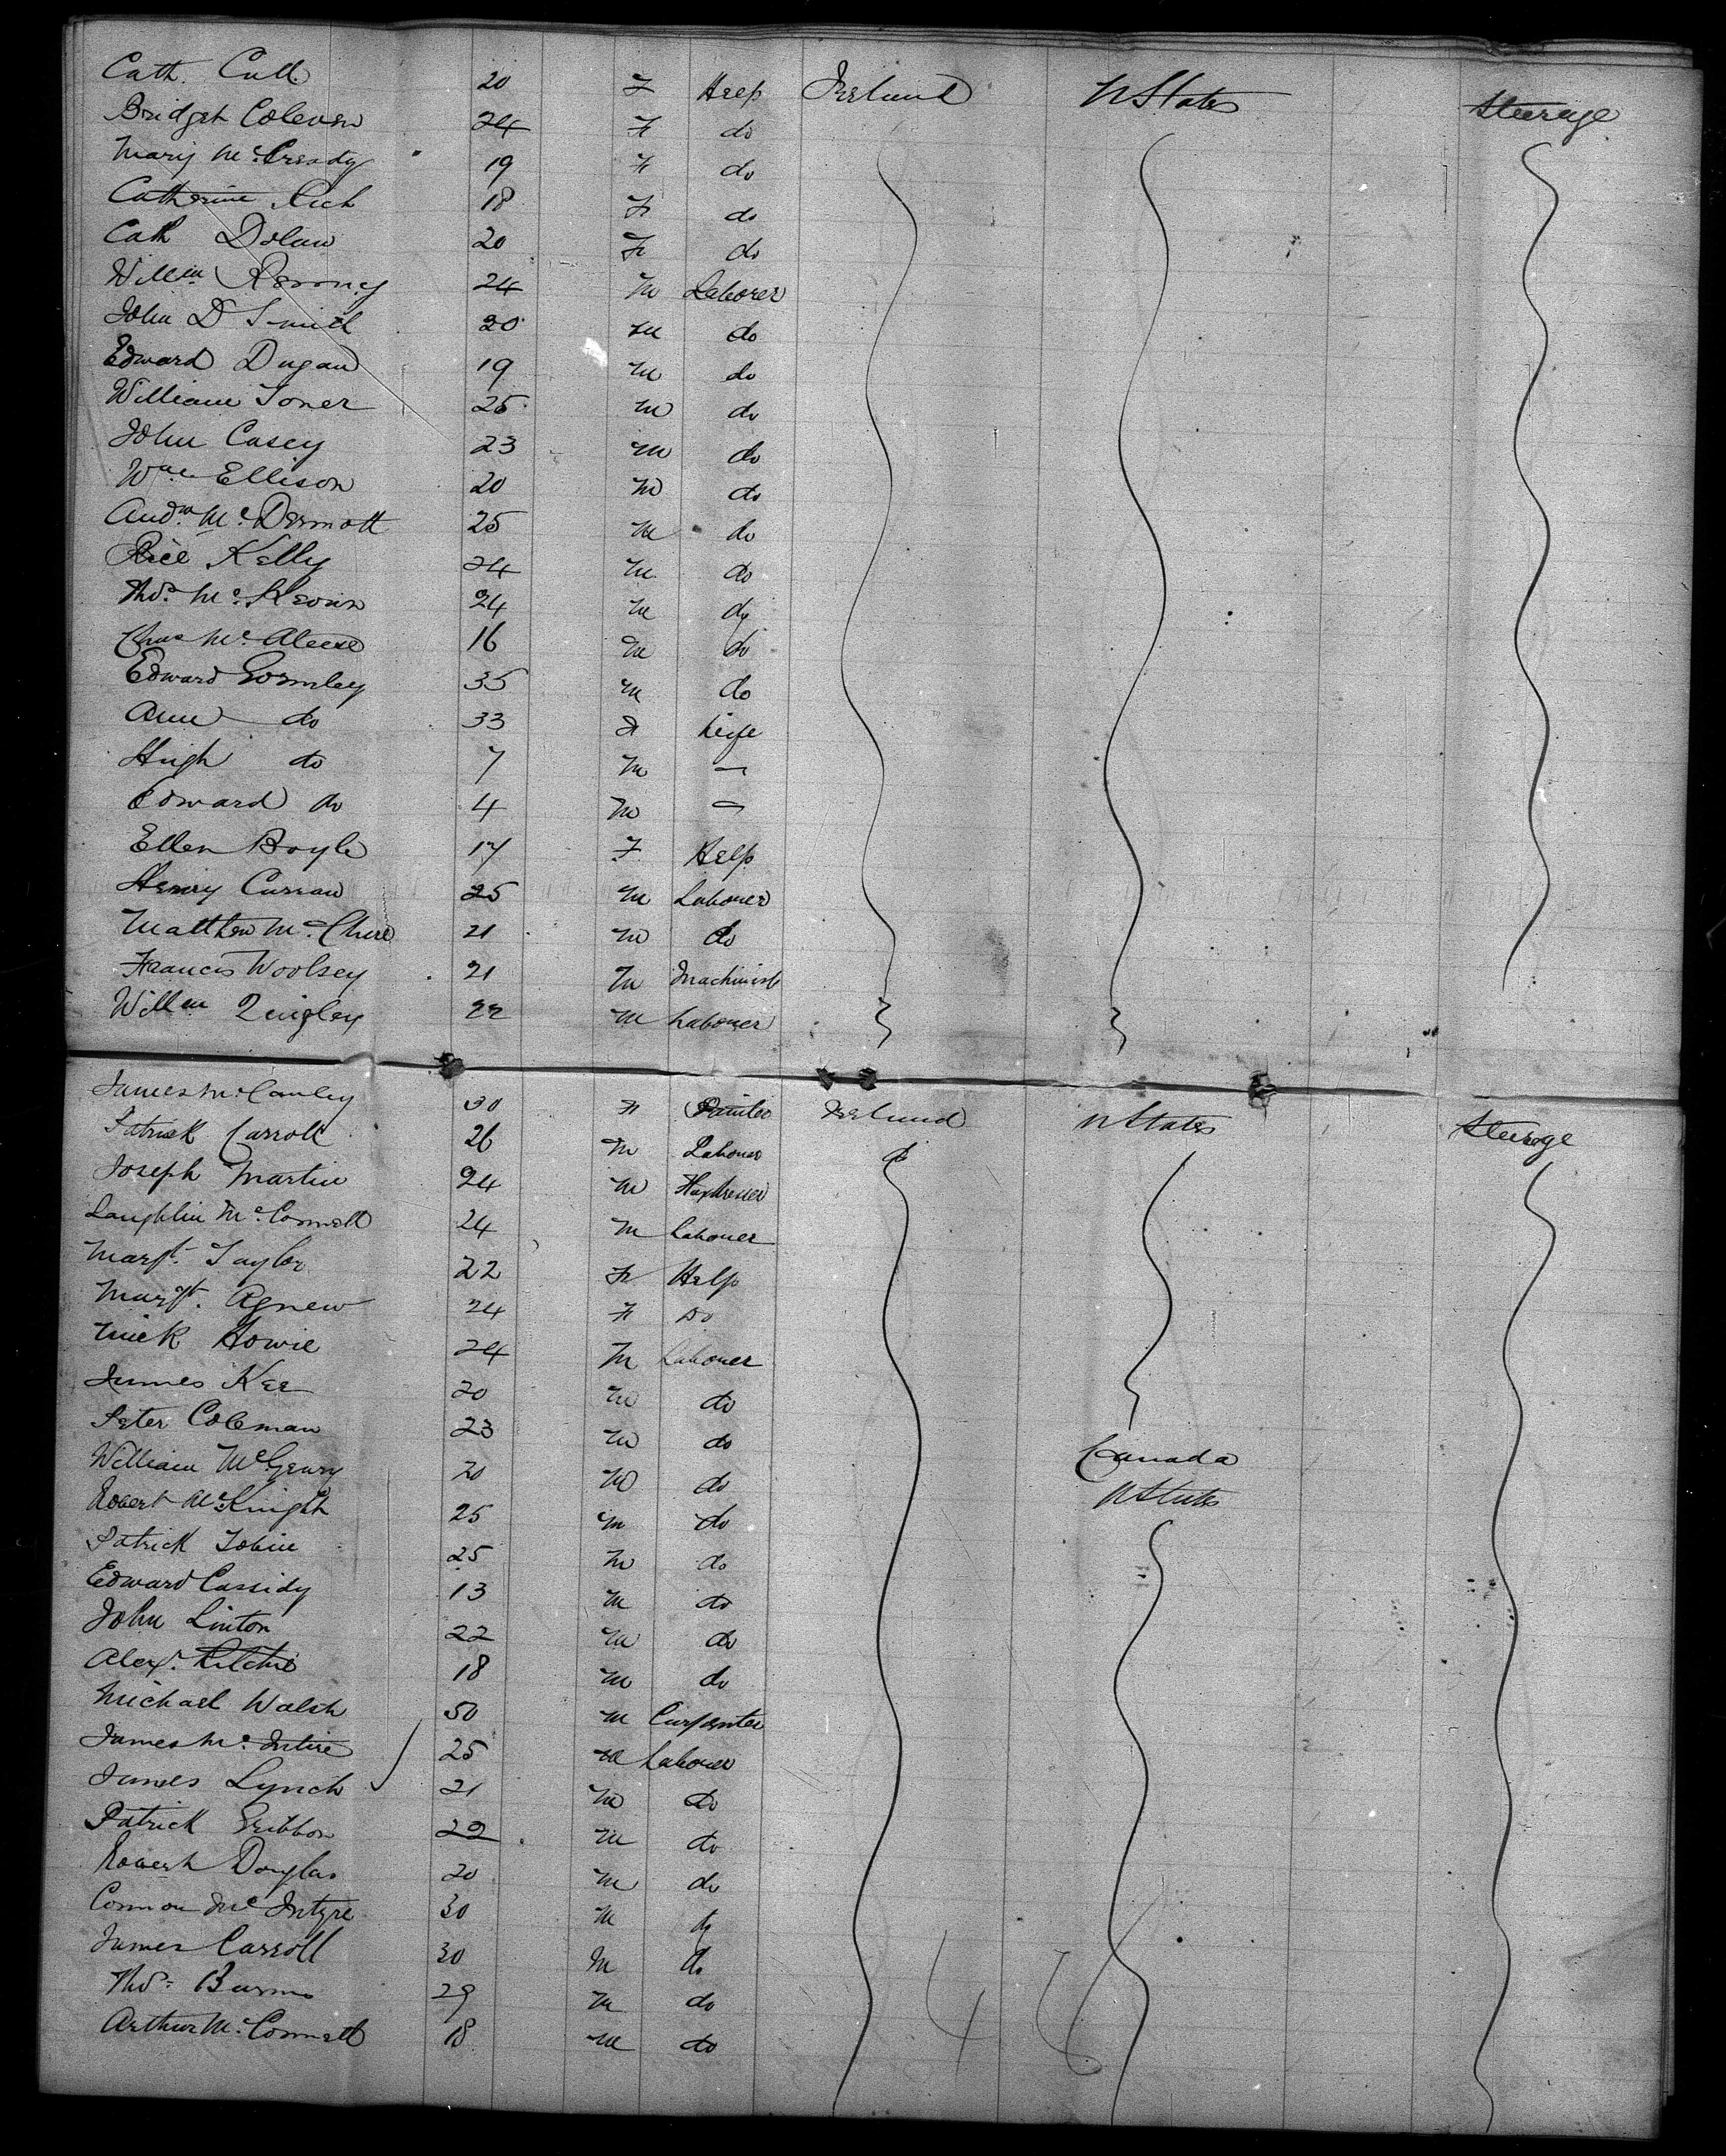 Cath. Cull 20 F Help Ireland U States Steerage
Bridget 24 F do
Mary Mc Cready 19 F do
Catherine Rich 18 F do
Cath Dolan 20 F do
Willm 24 M Laborer
John D Smith 20 M do
Edward Dugan 19 M do
William Toner 25 M do
John Casey 23 M do
Wm Ellison 20 M do
Andw Mc Dermott 25 M do
Kelly 24 M do
Thos. Mc 24 M do
Chas Mc Aleese 16 M do
Edward Gormley 35 M do
Ann do 33 F Wife
Hugh do 7 M —
Edward do 4 M —
Ellen Boyle 17 F Help
Henry Curran 25 M Labourer
Matthew Mc Clure 21 M do
Francis Woolsey 21 M Machinist
Willm Quigley 22 M Labourer
James Mc Cauley 30 F Painter Ireland U States Steerage
Patrick Carroll 26 M Labourer do
Joseph Martin 24 M Flaxdresser
Laughlin Mc Connell 24 M Labourer
Margt. Taylor 22 F Help
Margt. Agnew 24 F Do
Mick Howie 24 M Labourer
James Kee 20 M do
Peter Coleman 23 M do Canada
William McGeary 20 M do U States
Robert McKnight 25 M do
Patrick Tobin 25 M do
Edward Cassidy 13 M do
John Linton 22 M do
Alexr. Ritchie 18 M do
Michael Walsh 50 M Carpenter
James Mc Intire 25 M Labourer
James Lynch 21 M do
Patrick Gribbon 22 M do
Robert Douglas 20 M do
Connor Mc Intyre 30 M do
James Carroll 30 M do
Thos. Burns 29 M do
Arthur Mc Connell 18 M do